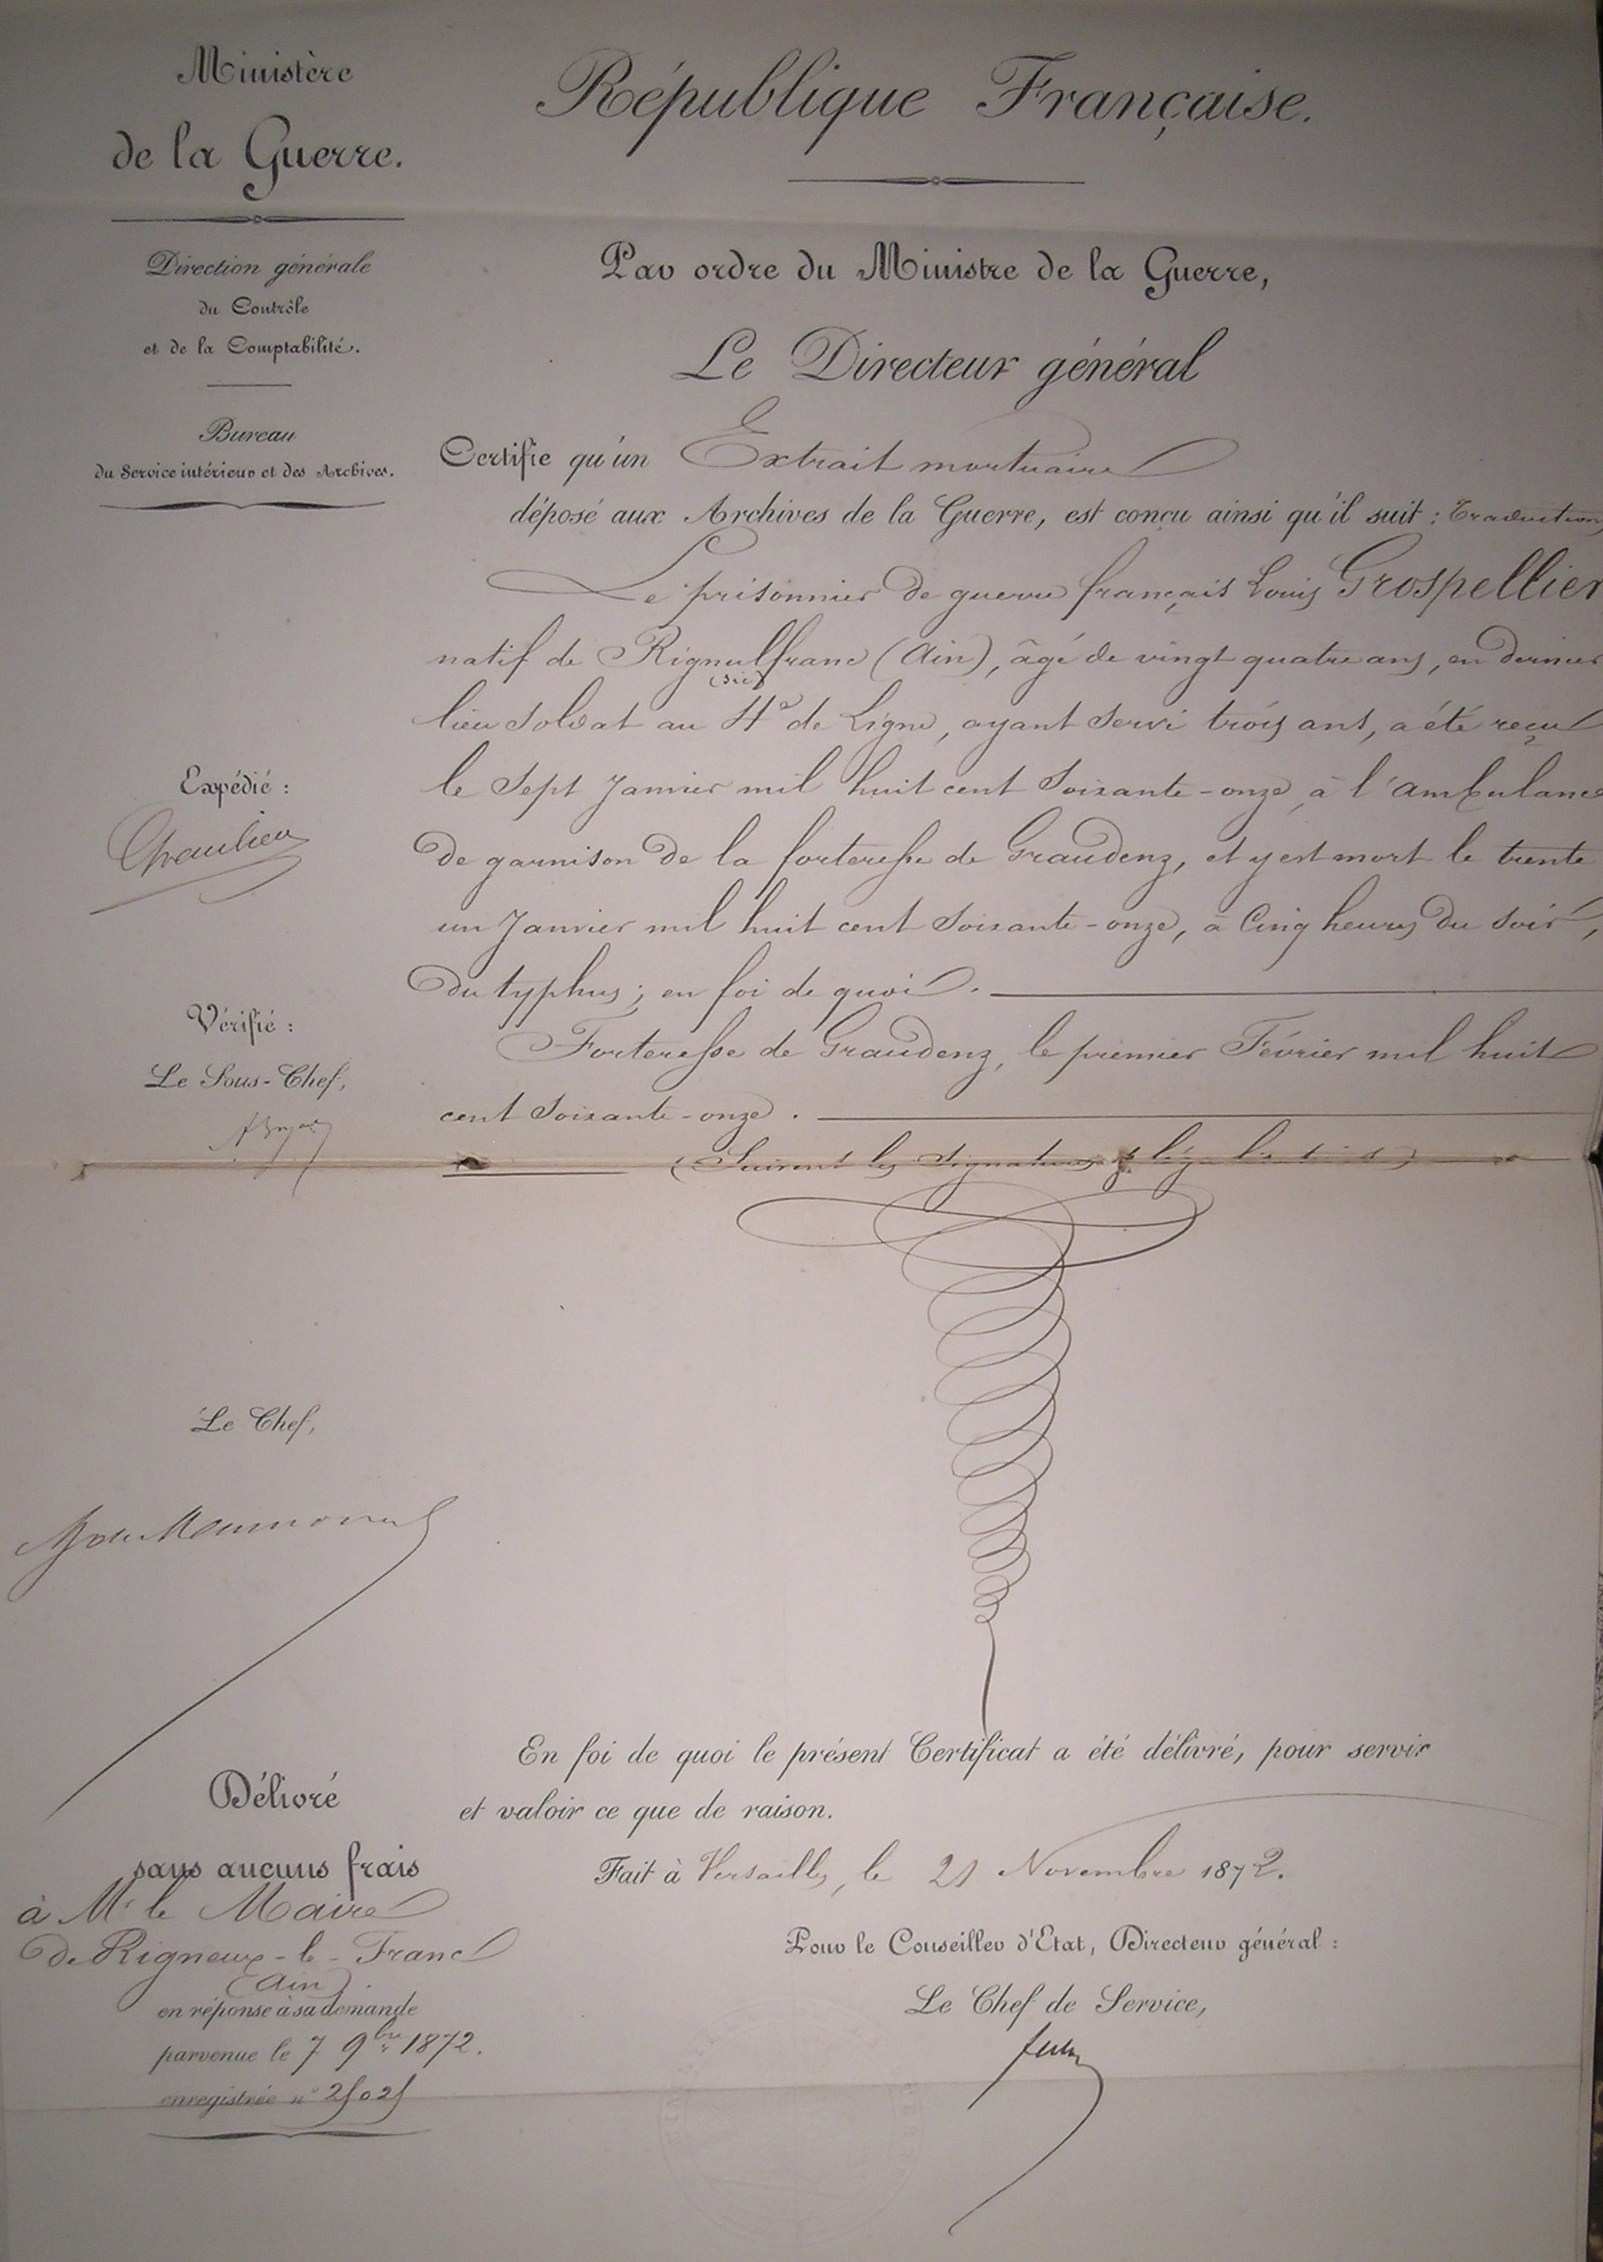 Ministère
de la Guerre.
Direction générale
du Contrôle
et de la Comptabilité.
Bureau
du Service intérieur et des Archives.
République Française.
Par ordre du Ministre de la Guerre,
Le Directeur général
Certifie qu'un Extrait mortuaire
déposé aux Archives de la Guerre, est conçu ainsi qu'il suit : Traduction
Le prisonnier de guerre français Louis Grospellier
natif de Rignulfranc (Ain), âgé de vingt quatre ans, en dernier
(sic)
lieu soldat au 4e de Ligne, ayant servi trois ans, a été reçu
le sept Janvier mil huit cent soixante-onze, à l'ambulance
de garnison de la forteresse de Graudenz, et y est mort le trente
un Janvier mil huit cent soixante-onze, à Cinq heures du soir,
du typhus ; en foi de quoi.
Forteresse de Graudenz, le premier Février mil huit
cent soixante-onze.
(Suivent les signatures et légalisations)
Expédié :
Vérifié :
Le Sous-Chef,
Le Chef,
En foi de quoi le présent Certificat a été délivré, pour servir
et valoir ce que de raison.
Fait à Versailles, le 21 Novembre 1872.
Pour le Conseiller d'Etat, Directeur général :
Le Chef de Service,
Délivré
sans aucuns frais
à Mr le Maire
de Rigneux-le-Franc
(Ain).
en réponse à sa demande
parvenue le 7 9bre 1872.
enregistrée no 25025